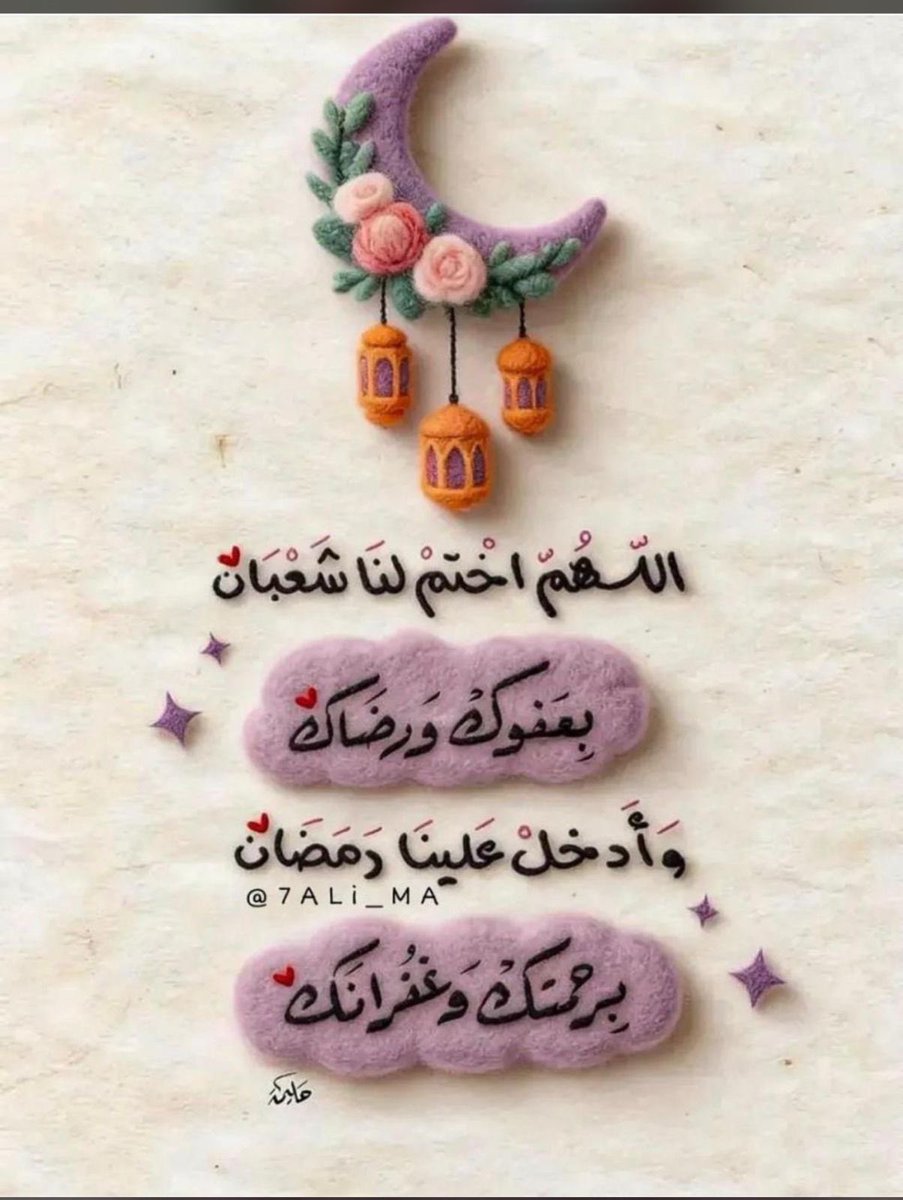 اللَّهُمَّ اخْتمْ لنَا شَعْبَانْ
بِعَفوكْ وَرضَاكْ
وَأَدخلْ عَلينَا رَمَضَانْ
@7ALi_MA
بِرحْمتكْ وَغُفْرانَكْ
حليمة